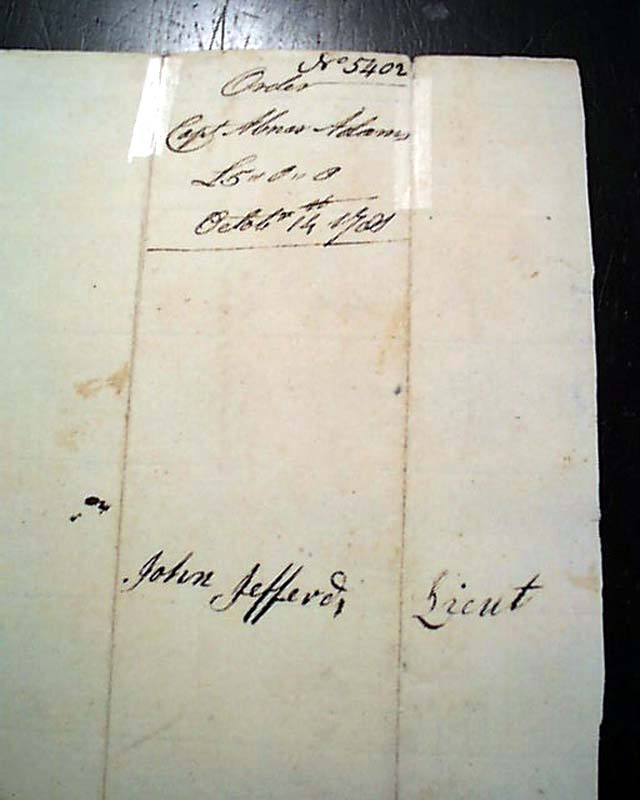 Nº 5402
Order
Capt Abner Adams
£5"0"0
Octobr 14th 1781
John Jefferds Lieut